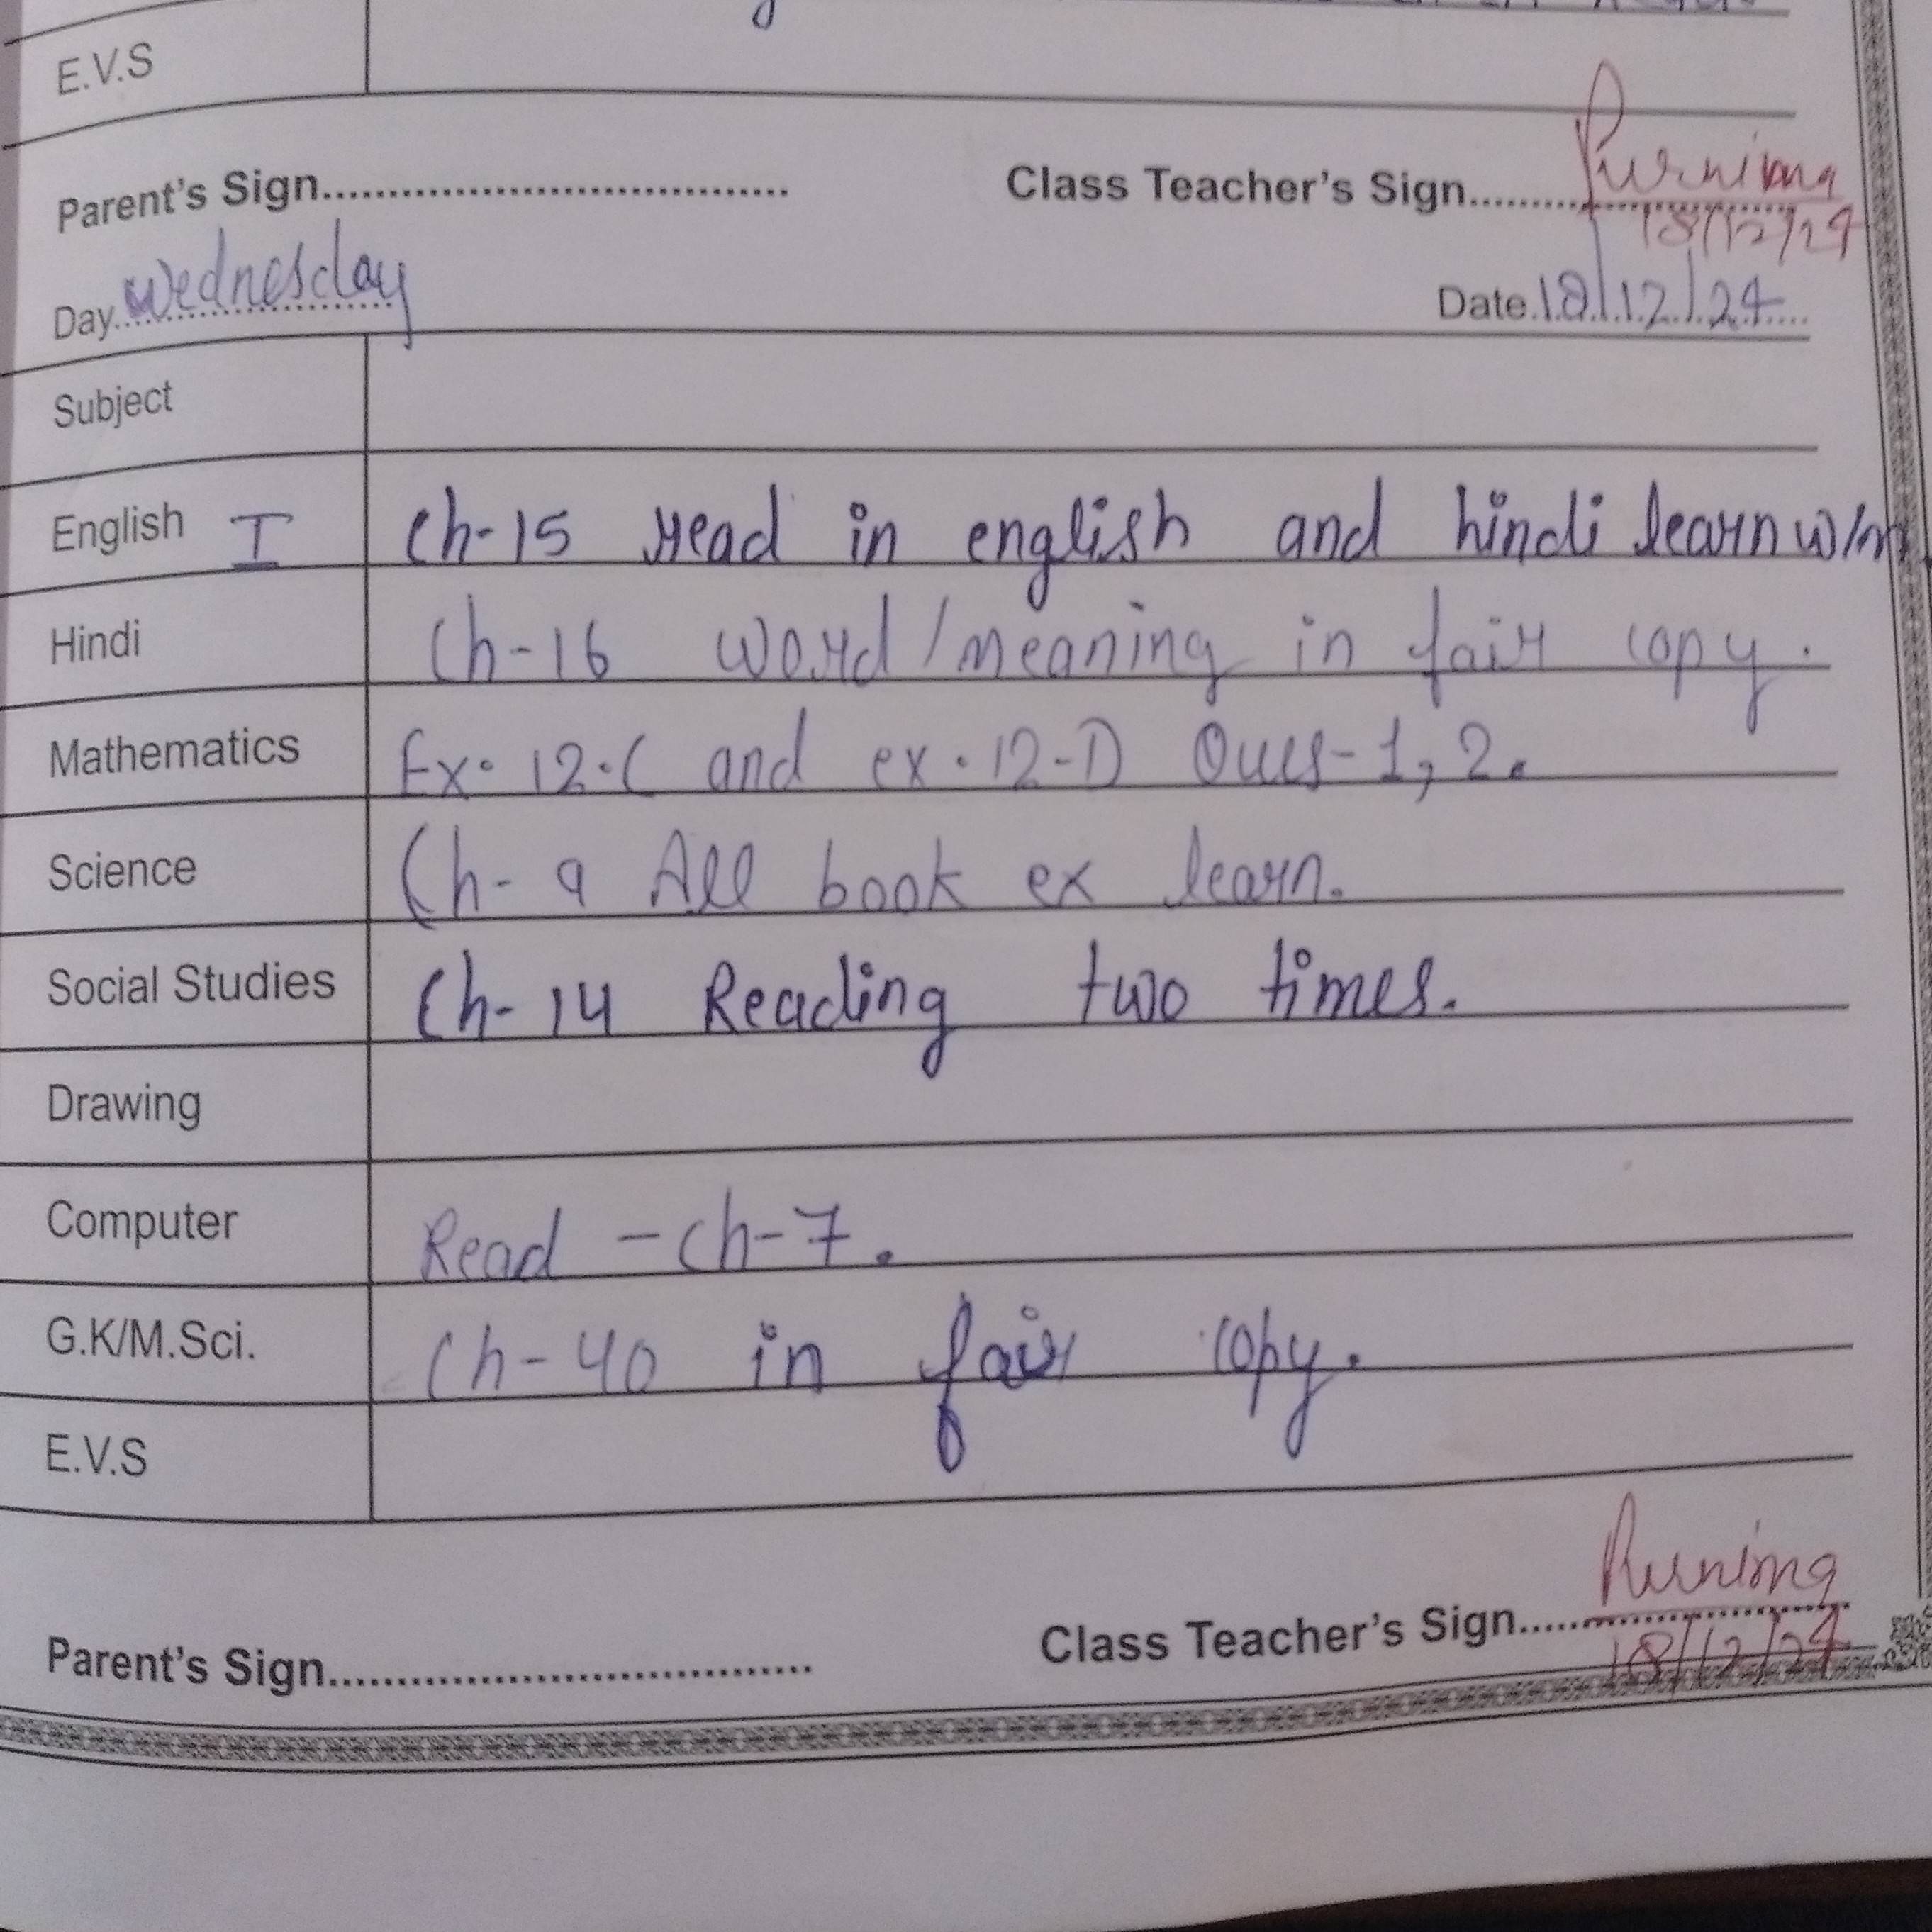 E.V.S
Parent's Sign................................... Class Teacher's Sign..........Purnima
18/12/24
Day..Wednesday Date.18/12/24....
Subject
English I Ch-15 read in english and hindi learn w/m
Hindi Ch-16 word/meaning in fair copy.
Mathematics Ex. 12.C and ex. 12-D Ques-1, 2.
Science Ch-9 All book ex learn.
Social Studies Ch-14 Reading two times.
Drawing
Computer Read - ch-7.
G.K/M.Sci. Ch-40 in fair copy.
E.V.S
Parent's Sign................................... Class Teacher's Sign..........Purnima
18/12/24